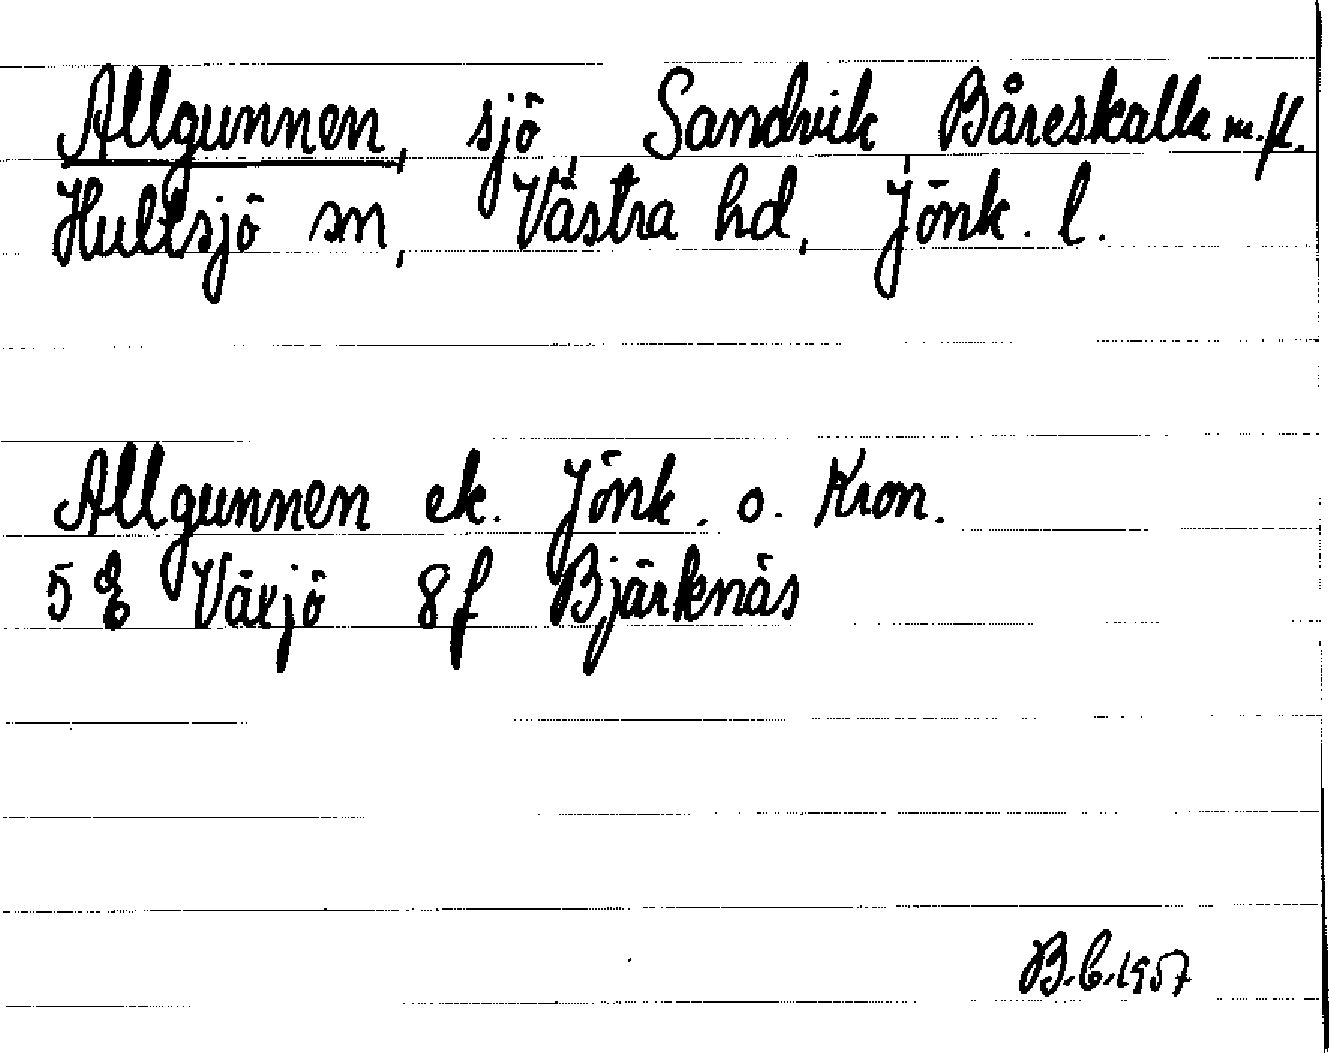 Allgunnen, sjö, Sandvik, Båreskalla m.fl.
Hultsjö sn, Västra hd, Jönk. l.
Allgunnen ek. Jönk. o. Kron.
5 E Växjö 8f Bjärknäs
B.C. 1957